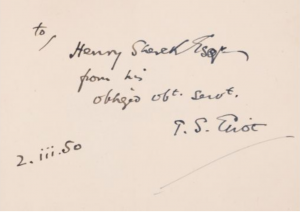 to
Henry Sherek Esq
from his
obliged obt. servt.
T. S. Eliot
2.iii.50